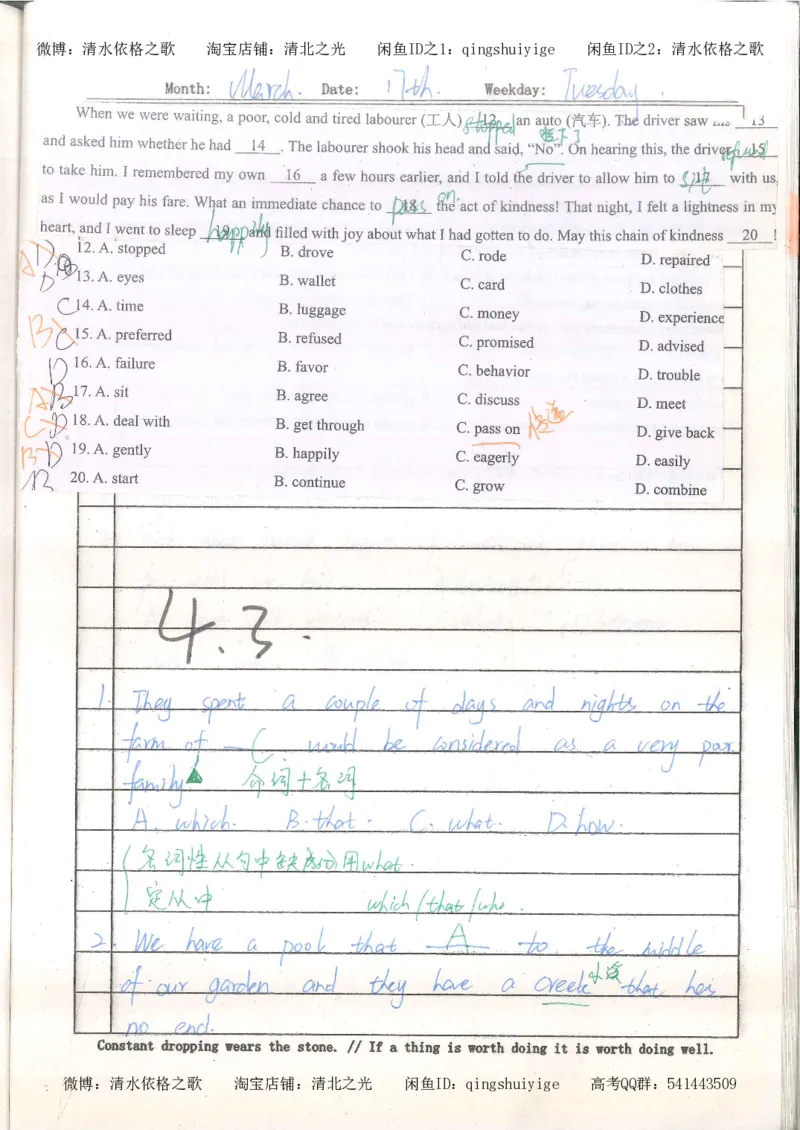 微博：清水依格之歌 淘宝店铺：清北之光 闲鱼ID之1：qingshuiyige 闲鱼ID之2：清水依格之歌
Month: March. Date: 17th. Weekday: Tuesday.
When we were waiting, a poor, cold and tired labourer (工人) 12 stopped an auto (汽车). The driver saw 13
拦下了
and asked him whether he had 14 . The labourer shook his head and said, “No”. On hearing this, the driver 15 refused
to take him. I remembered my own 16 a few hours earlier, and I told the driver to allow him to 17 sit with us,
as I would pay his fare. What an immediate chance to 18 pass on the act of kindness! That night, I felt a lightness in my
heart, and I went to sleep 19 happily and filled with joy about what I had gotten to do. May this chain of kindness 20 !
A D 12. A. stopped B. drove C. rode D. repaired
D 13. A. eyes B. wallet C. card D. clothes
C 14. A. time B. luggage C. money D. experience
B C 15. A. preferred B. refused C. promised D. advised
D 16. A. failure B. favor C. behavior D. trouble
A B 17. A. sit B. agree C. discuss D. meet
C D 18. A. deal with B. get through C. pass on 传递 D. give back
B D 19. A. gently B. happily C. eagerly D. easily
B 20. A. start B. continue C. grow D. combine
4.3.
1. They spent a couple of days and nights on the
farm of C would be considered as a very poor
family 介词+名词
A. which. B. that. C. what. D. how.
名词性从句中缺成分用what.
定从中 which/that/who.
2. We have a pool that A to the middle
of our garden and they have a creek 小溪 that has
no end.
Constant dropping wears the stone. // If a thing is worth doing it is worth doing well.
微博：清水依格之歌 淘宝店铺：清北之光 闲鱼ID：qingshuiyige 高考QQ群：541443509